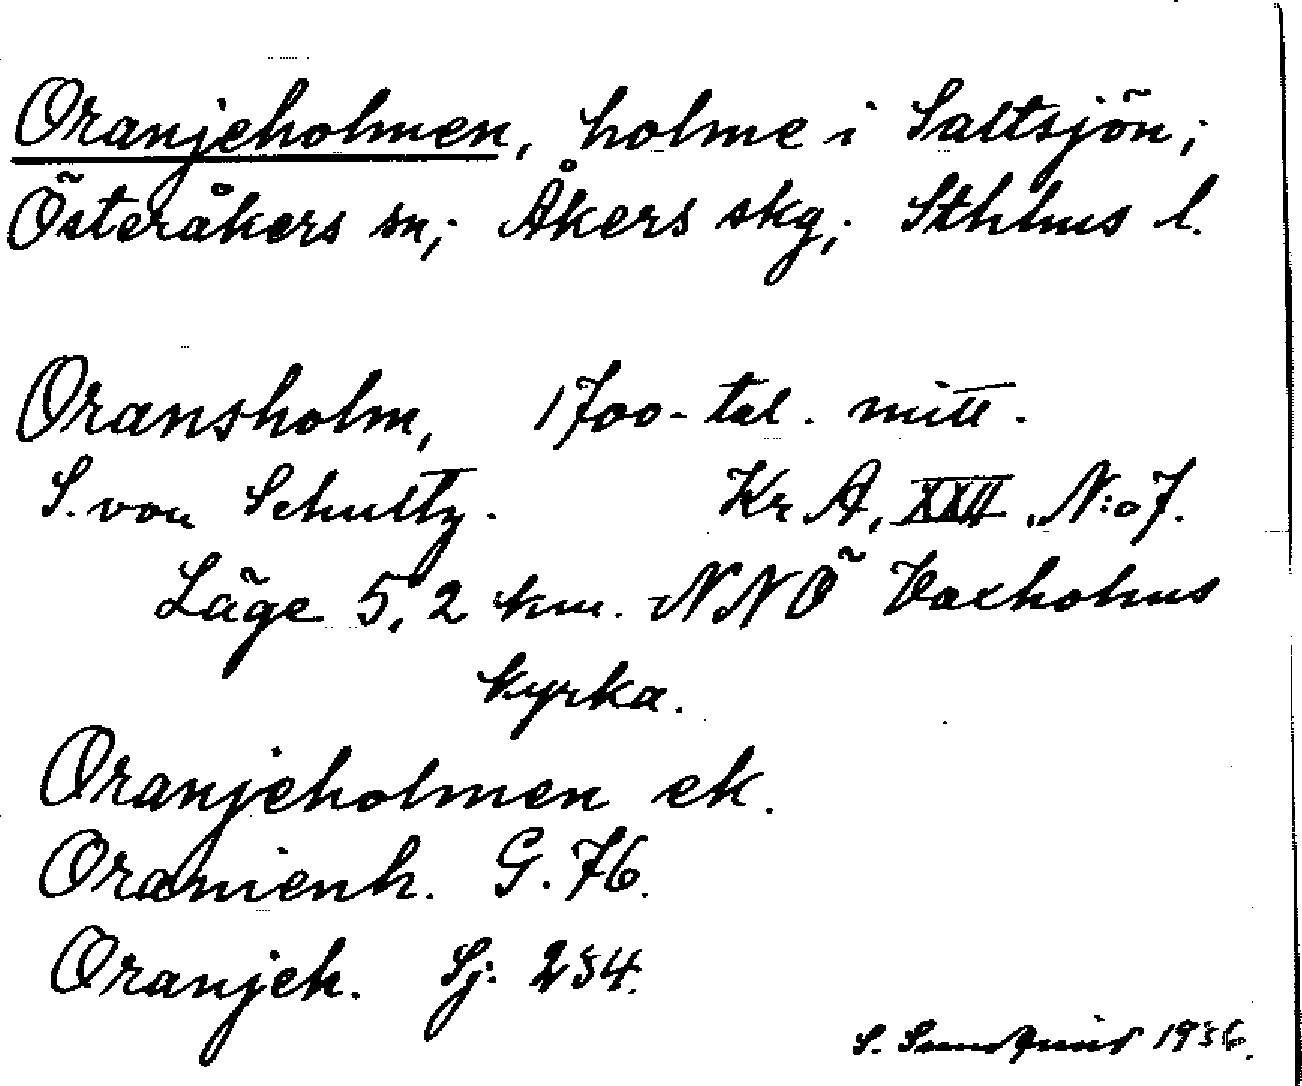 Oranjeholmen, holme i Saltsjön;
Österåkers sn; Åkers skg; Sthlms l.
Oransholm, 1700-tal. mitt.
S. von Schultz. Kr A, XXII, N:o 7.
Läge 5,2 km. NNÖ Vaxholms
kyrka.
Oranjeholmen ek.
Oranienh. G. 76.
Oranjeh. Sj. 234.
S. Sundquist 1936.